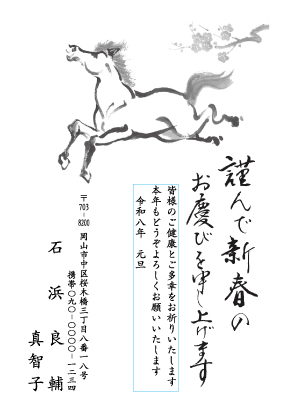 謹んで新春の
お慶びを申し上げます
皆様のご健康とご多幸をお祈りいたします
本年もどうぞよろしくお願いいたします
令和八年　元旦
〒703-8200　岡山市中区桜木橋三丁目八番一八号
携帯〇九〇-〇〇〇〇-一二三四
石浜良輔
真智子